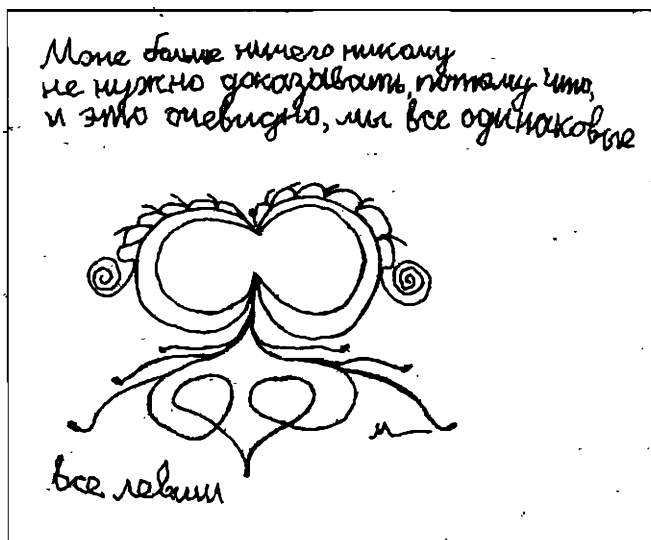 Моне больше ничего никому
не нужно доказывать, потому что,
и это очевидно, мы все одинаковые
все левши